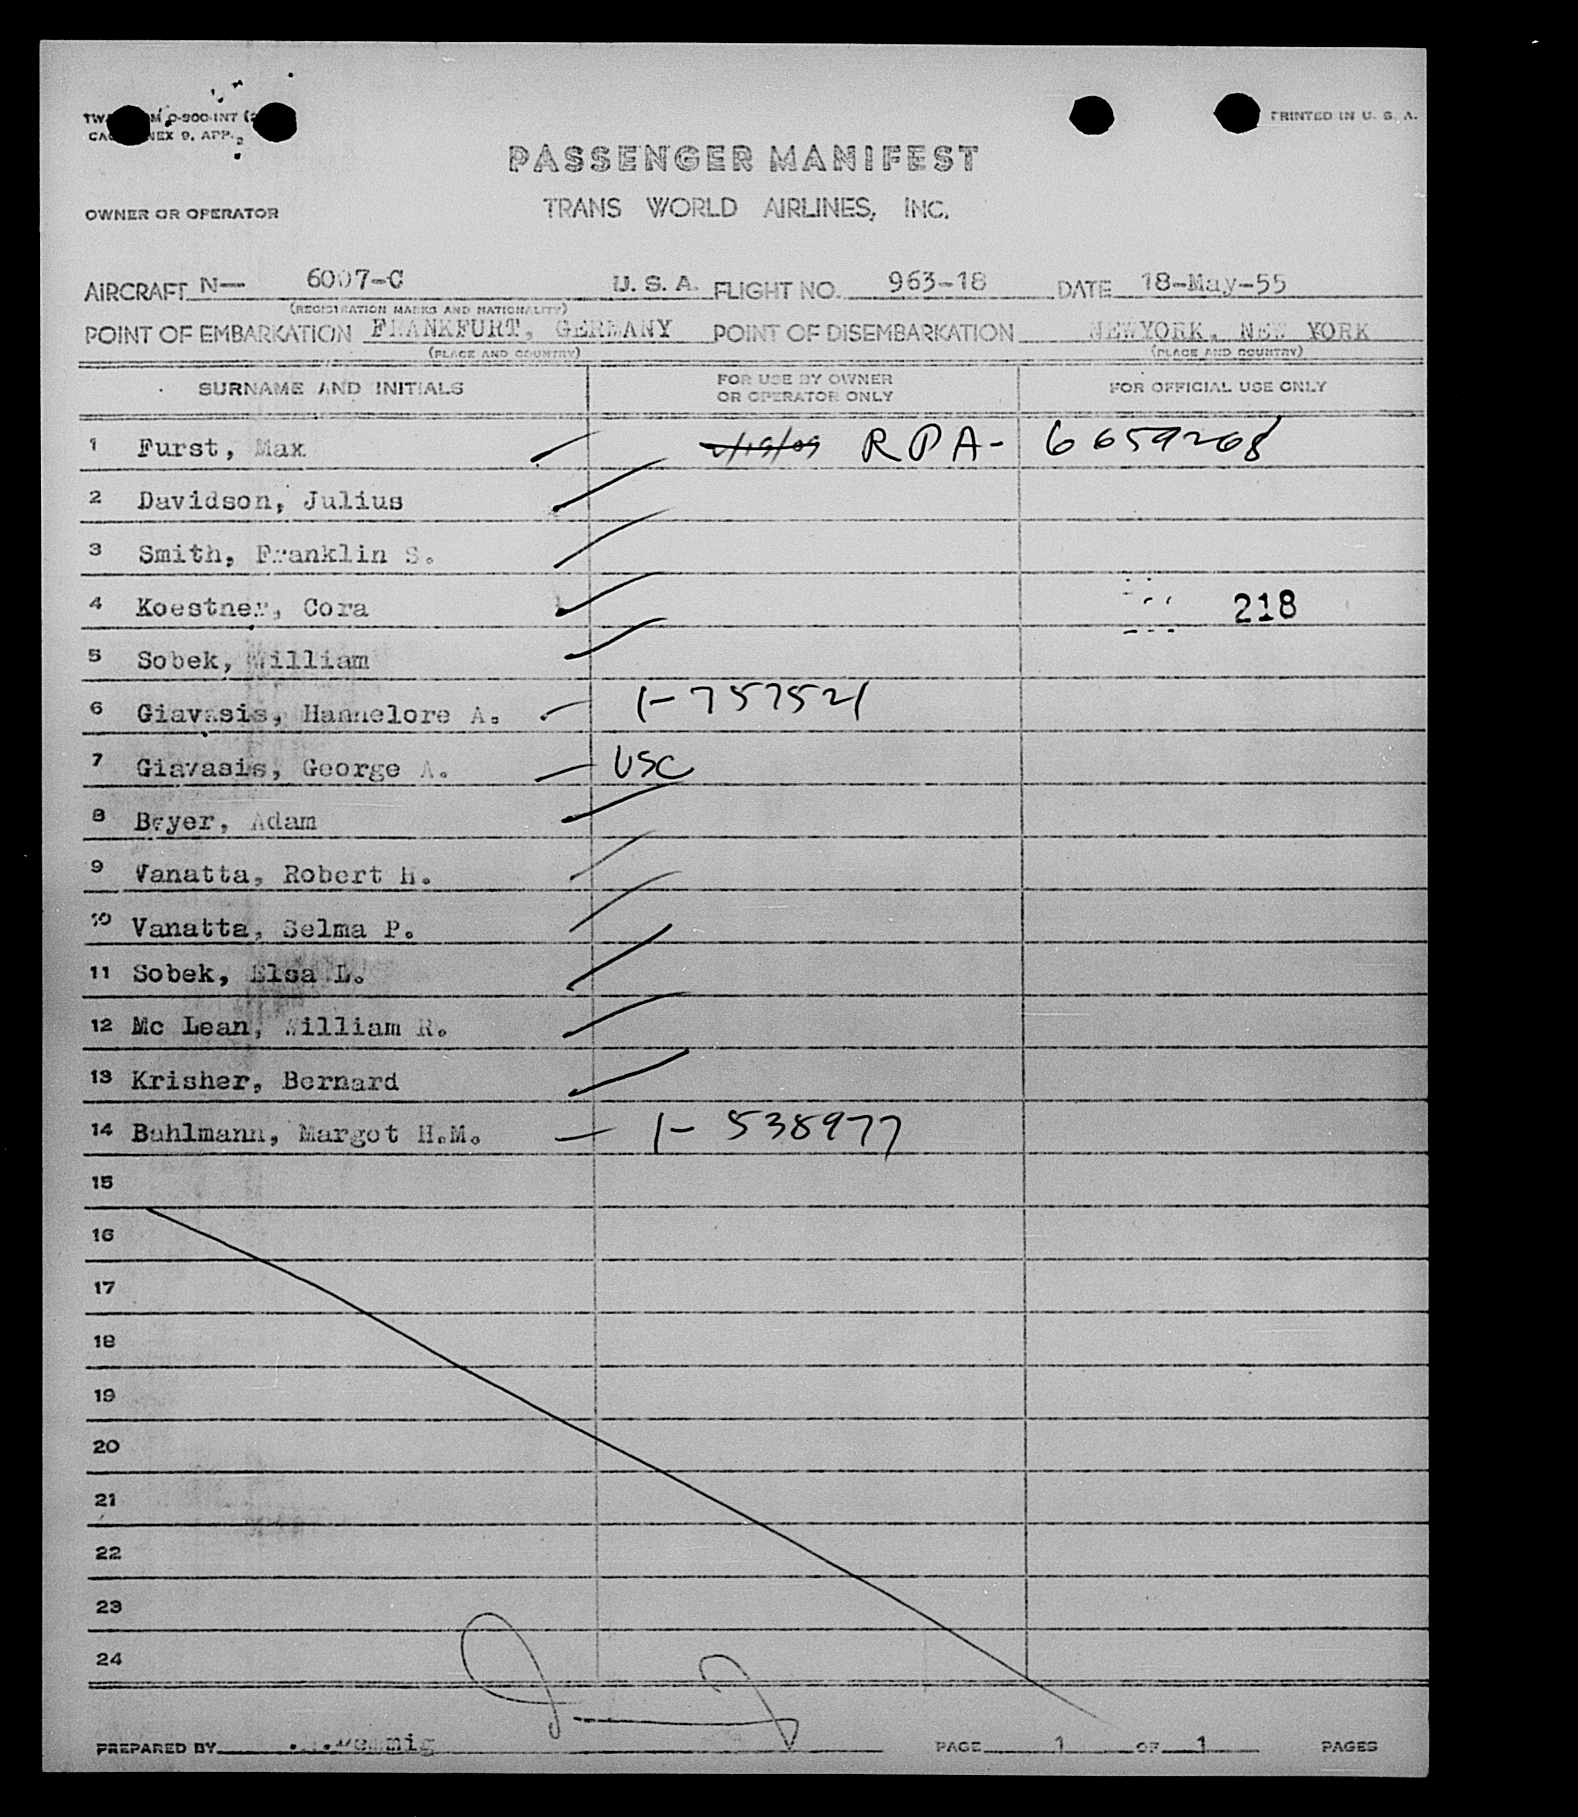 PRINTED IN U. S. A.
PASSENGER MANIFEST
OWNER OR OPERATOR TRANS WORLD AIRLINES, INC.
AIRCRAFT N— 6007-C U. S. A. FLIGHT NO. 963-18 DATE 18-May-55
(REGISTRATION MARKS AND NATIONALITY)
POINT OF EMBARKATION FRANKFURT, GERMANY POINT OF DISEMBARKATION NEWYORK, NEW YORK
(PLACE AND COUNTRY) (PLACE AND COUNTRY)
SURNAME AND INITIALS FOR USE BY OWNER OR OPERATOR ONLY FOR OFFICIAL USE ONLY
1 Furst, Max RPA- 6659268
2 Davidson, Julius
3 Smith, Franklin S.
4 Koestner, Cora 218
5 Sobek, William
6 Giavasis, Hannelore A. 1-757521
7 Giavasis, George A. USC
8 Beyer, Adam
9 Vanatta, Robert H.
10 Vanatta, Selma P.
11 Sobek, Elsa L.
12 Mc Lean, William R.
13 Krisher, Bernard
14 Bahlmann, Margot H.M. 1-538977
15
16
17
18
19
20
21
22
23
24
PREPARED BY PAGE 1 OF 1 PAGES